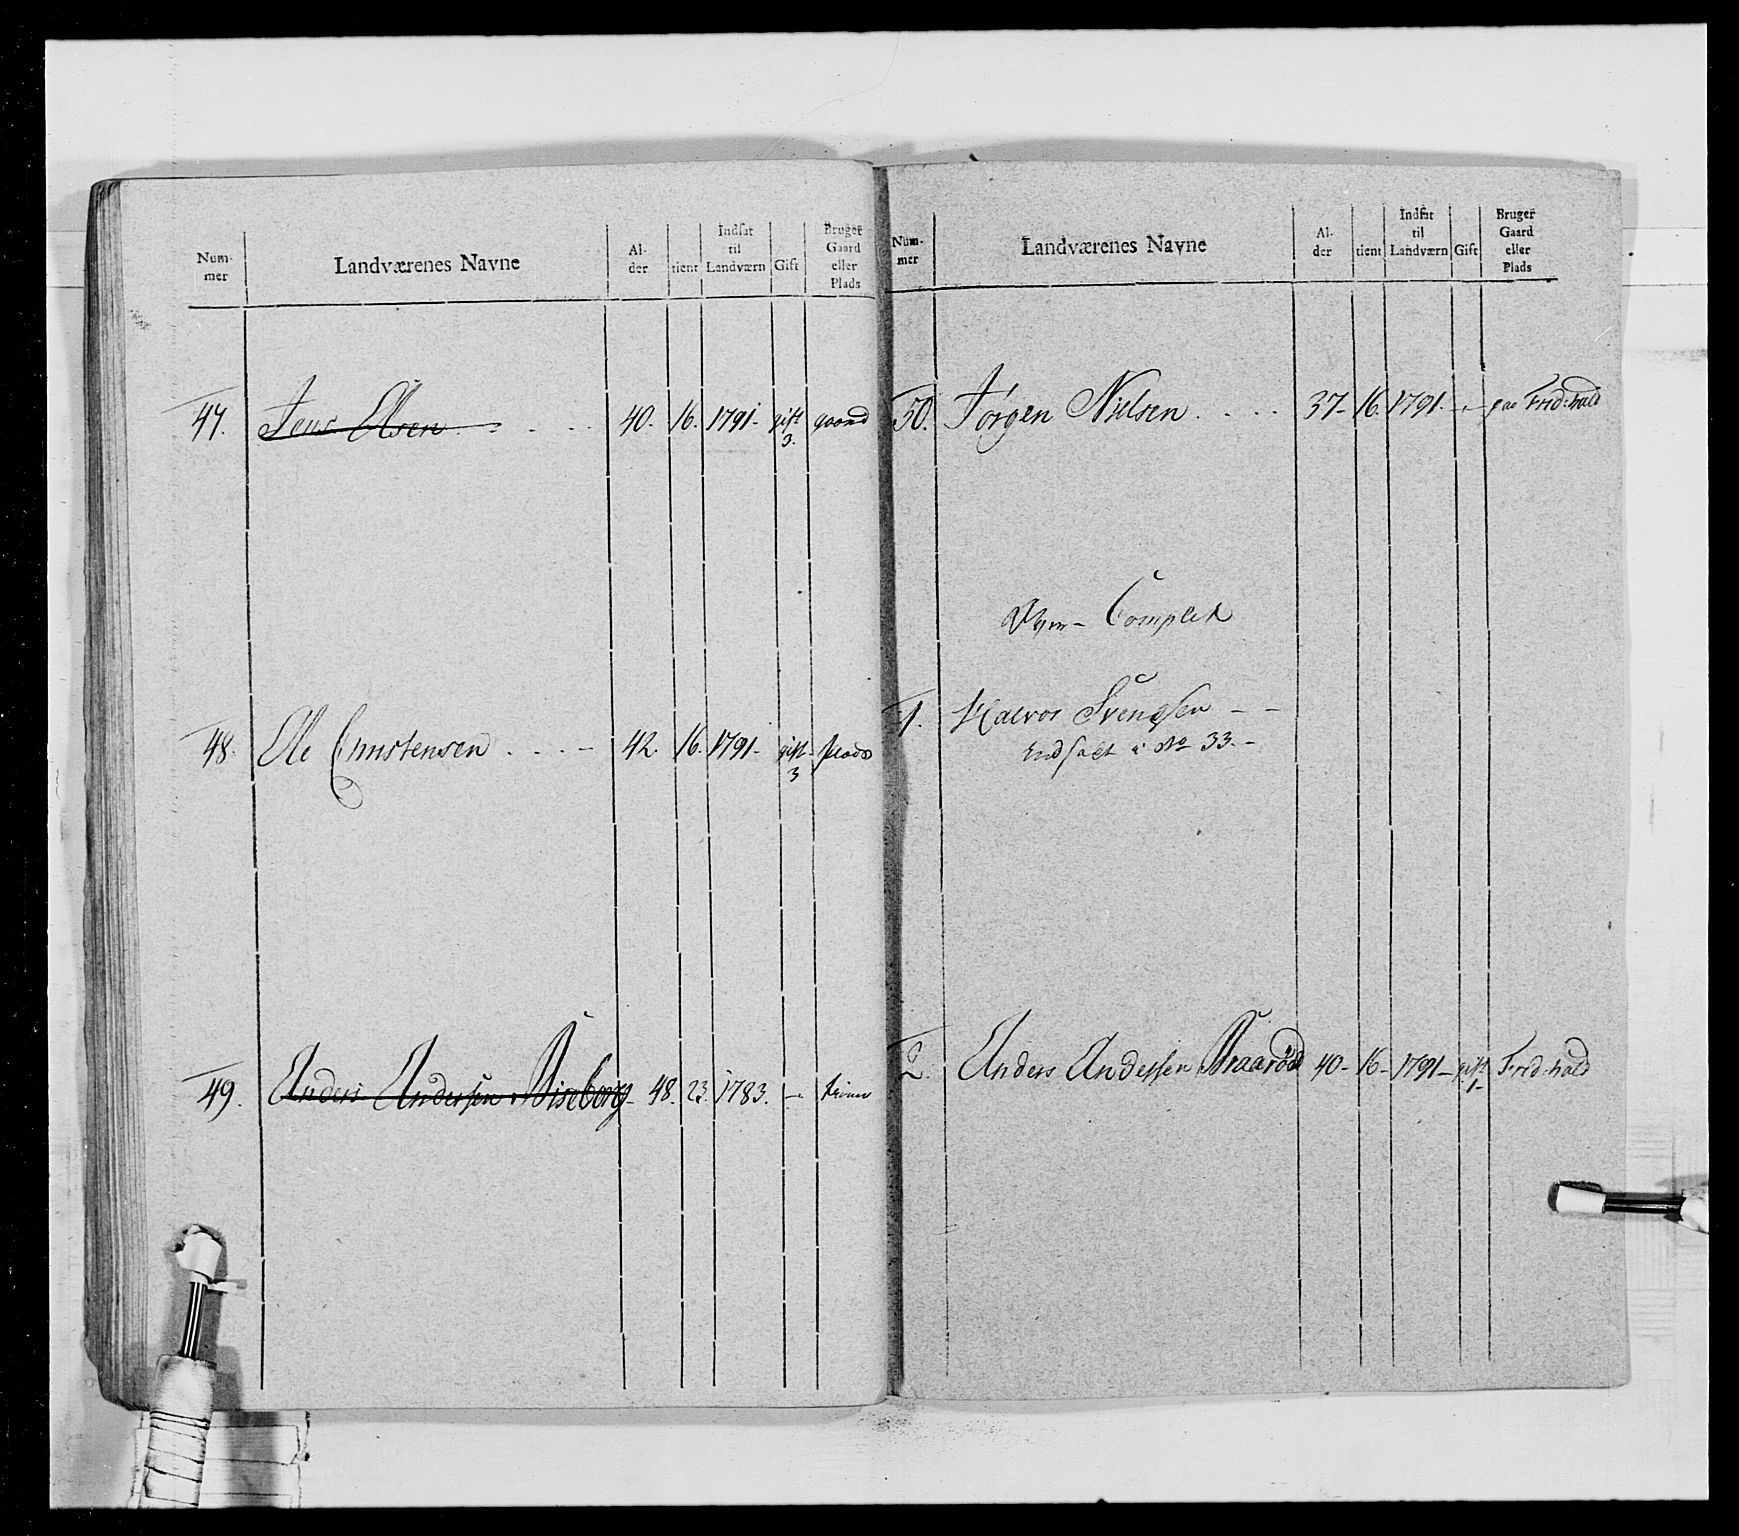 Num-
mer
Landværenes Navne
Al-
der
tient
Indsat
til
Landværn
Gift
Bruger
Gaard
eller
Plads
47. Jens Olsen . . . 40. 16. 1791. gift gaard
3.
48. Ole Christensen . . . - 42. 16. 1791. gift plads
3
49. Anders Andersen 48. 23. 1783. -
Num-
mer
Landværenes Navne
Al-
der
tient
Indsat
til
Landværn
Gift
Bruger
Gaard
eller
Plads
50. Jørgen Nielsen . . . . 37- 16. 1791. - paa Fridhald
Complet
1. Halvor Svendsen - -
Indsatt i No 33. -
2. Anders Andersen Braarød 40- 16- 1791- gift Fridhald
1-